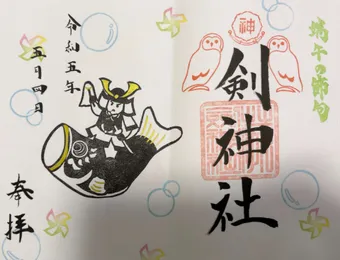 端午の節句
神
剣神社
令和五年
五月四日
奉拝